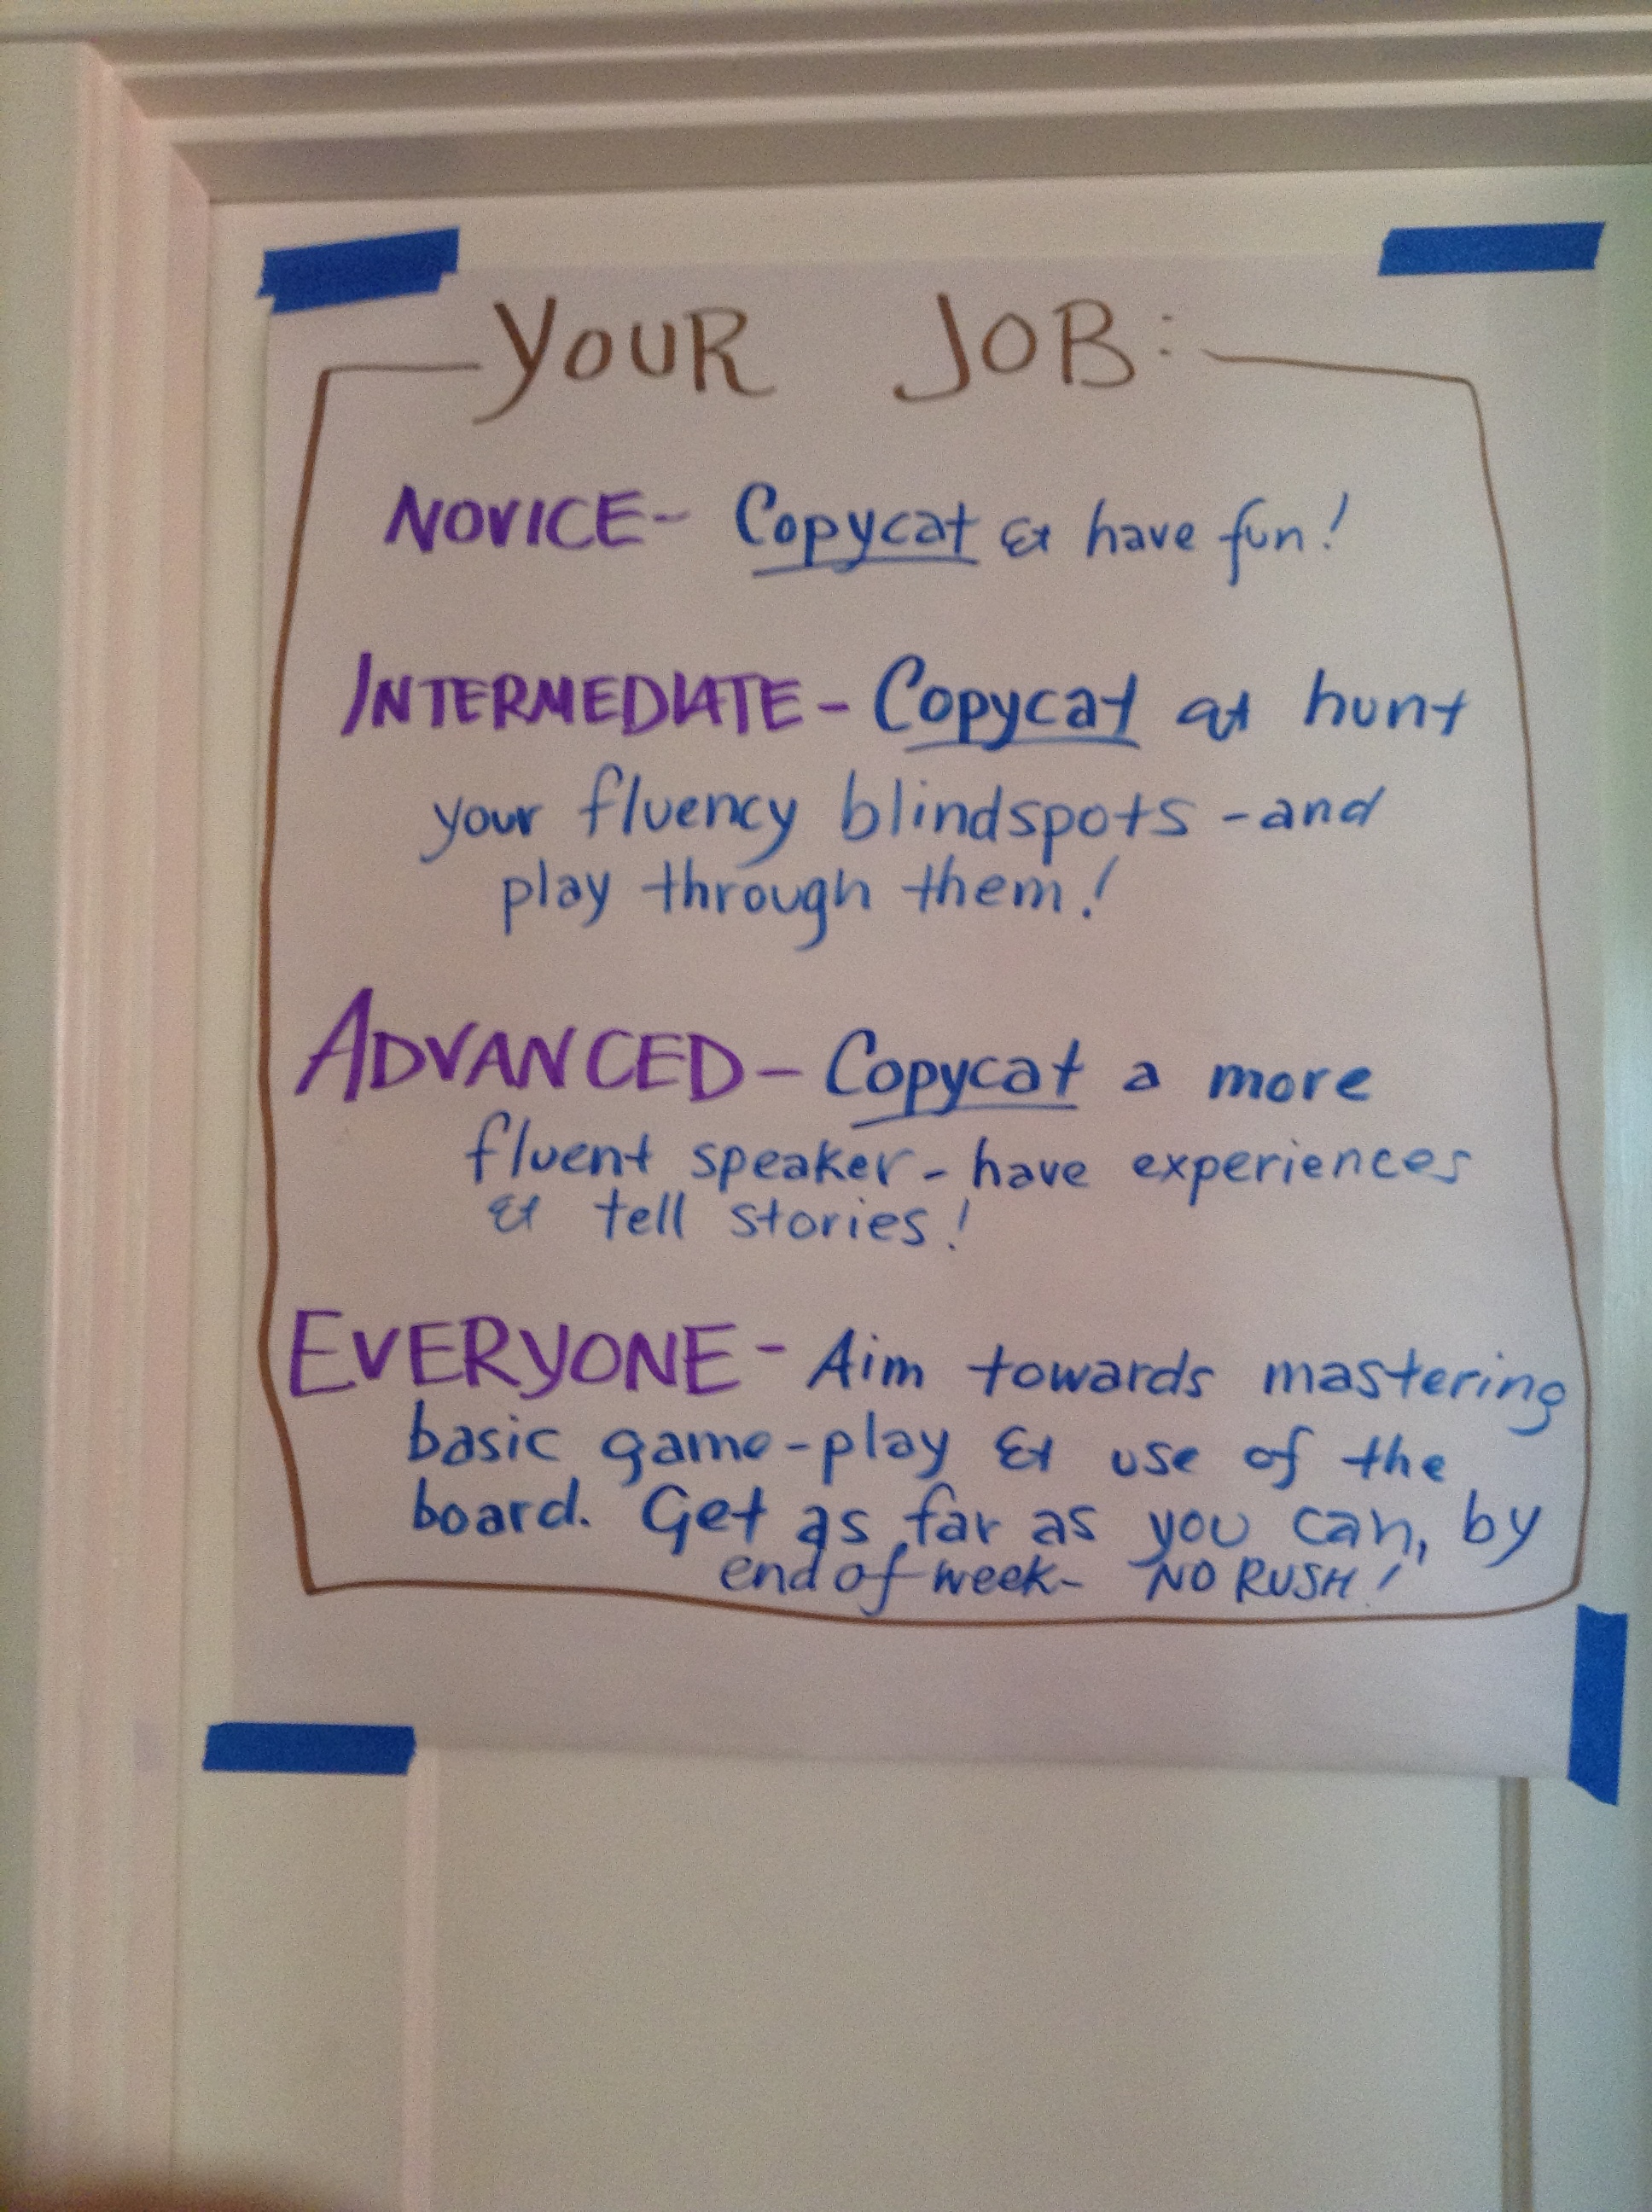 YOUR JOB:
NOVICE- Copycat & have fun!
INTERMEDIATE- Copycat & hunt
your fluency blindspots -and
play through them!
ADVANCED- Copycat a more
fluent speaker- have experiences
& tell stories!
EVERYONE- Aim towards mastering
basic game-play & use of the
board. Get as far as you can, by
end of week- NO RUSH!